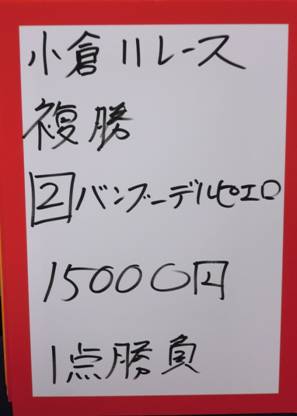 小倉11レース
複勝
2 バンブーデルピエロ
15000円
1点勝負